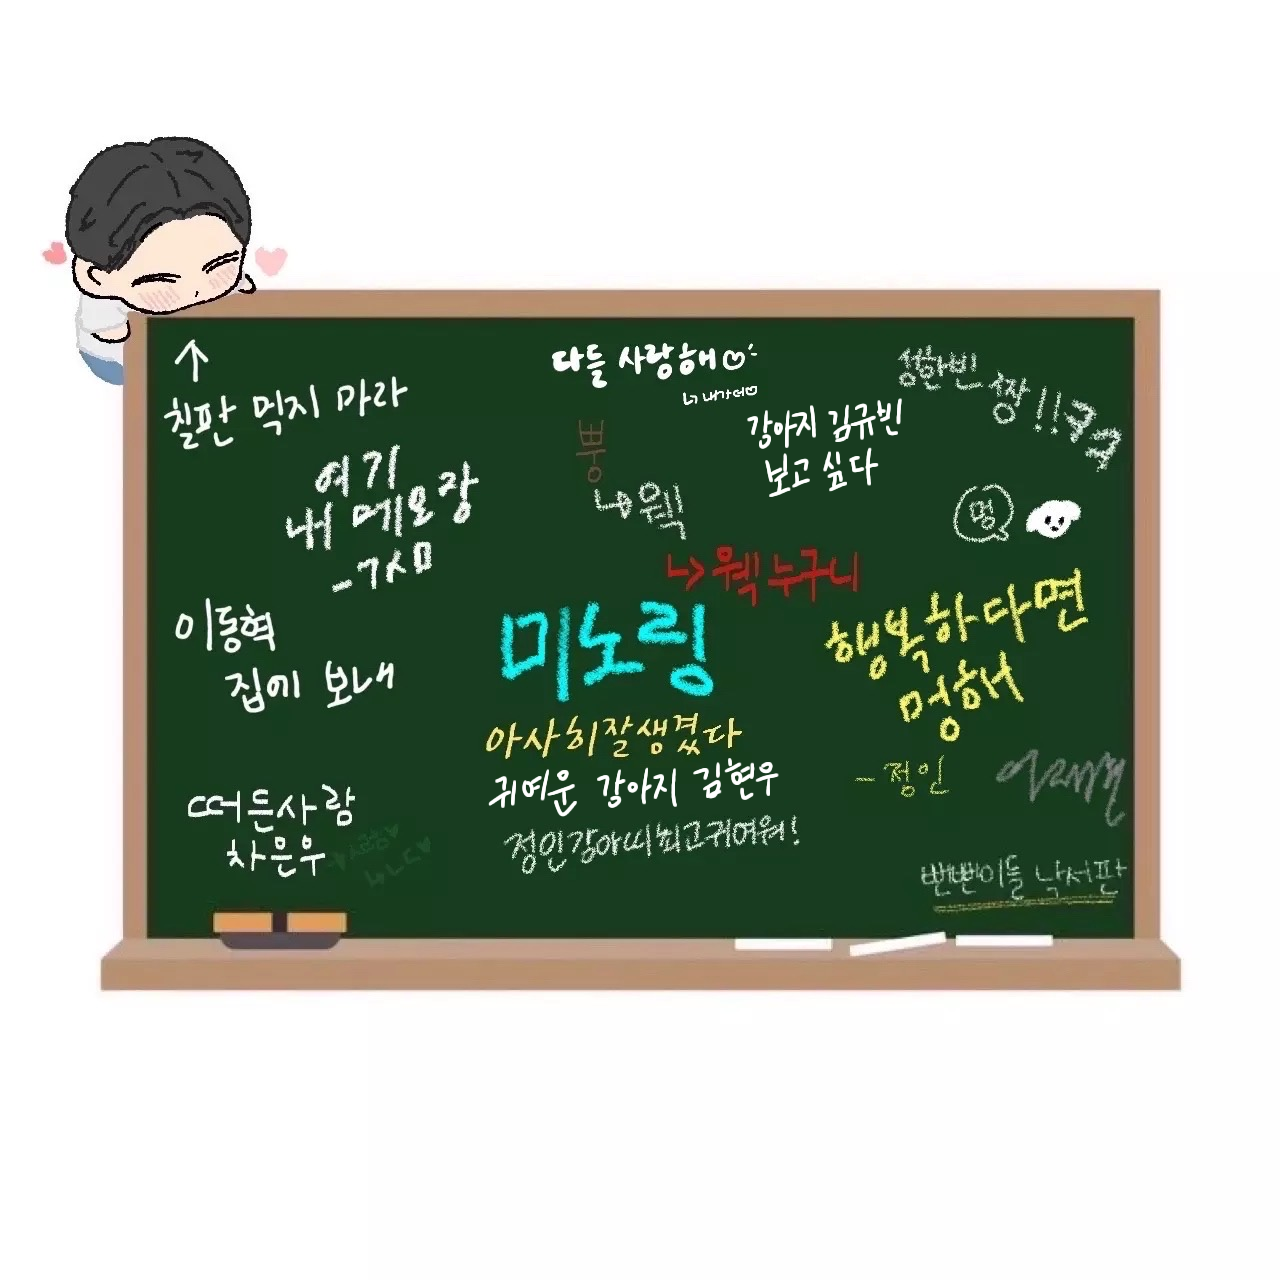 다들 사랑해
ㄴ 내가더
성한빈
짱!!ㅋㅋ
↑
칠판 먹지 마라
강아지 김규빈
보고 싶다
뿡
↳웩
↳웩 누구니
여기
내 메모장
-ㄱ심
멍
이동혁
집에 보내
미노링
행복하다면
멍해
-정인
아사히잘생겼다
귀여운 강아지 김현우
정인강아찌뇌고귀여워!
떠든사람
차은우
사람
낙서판